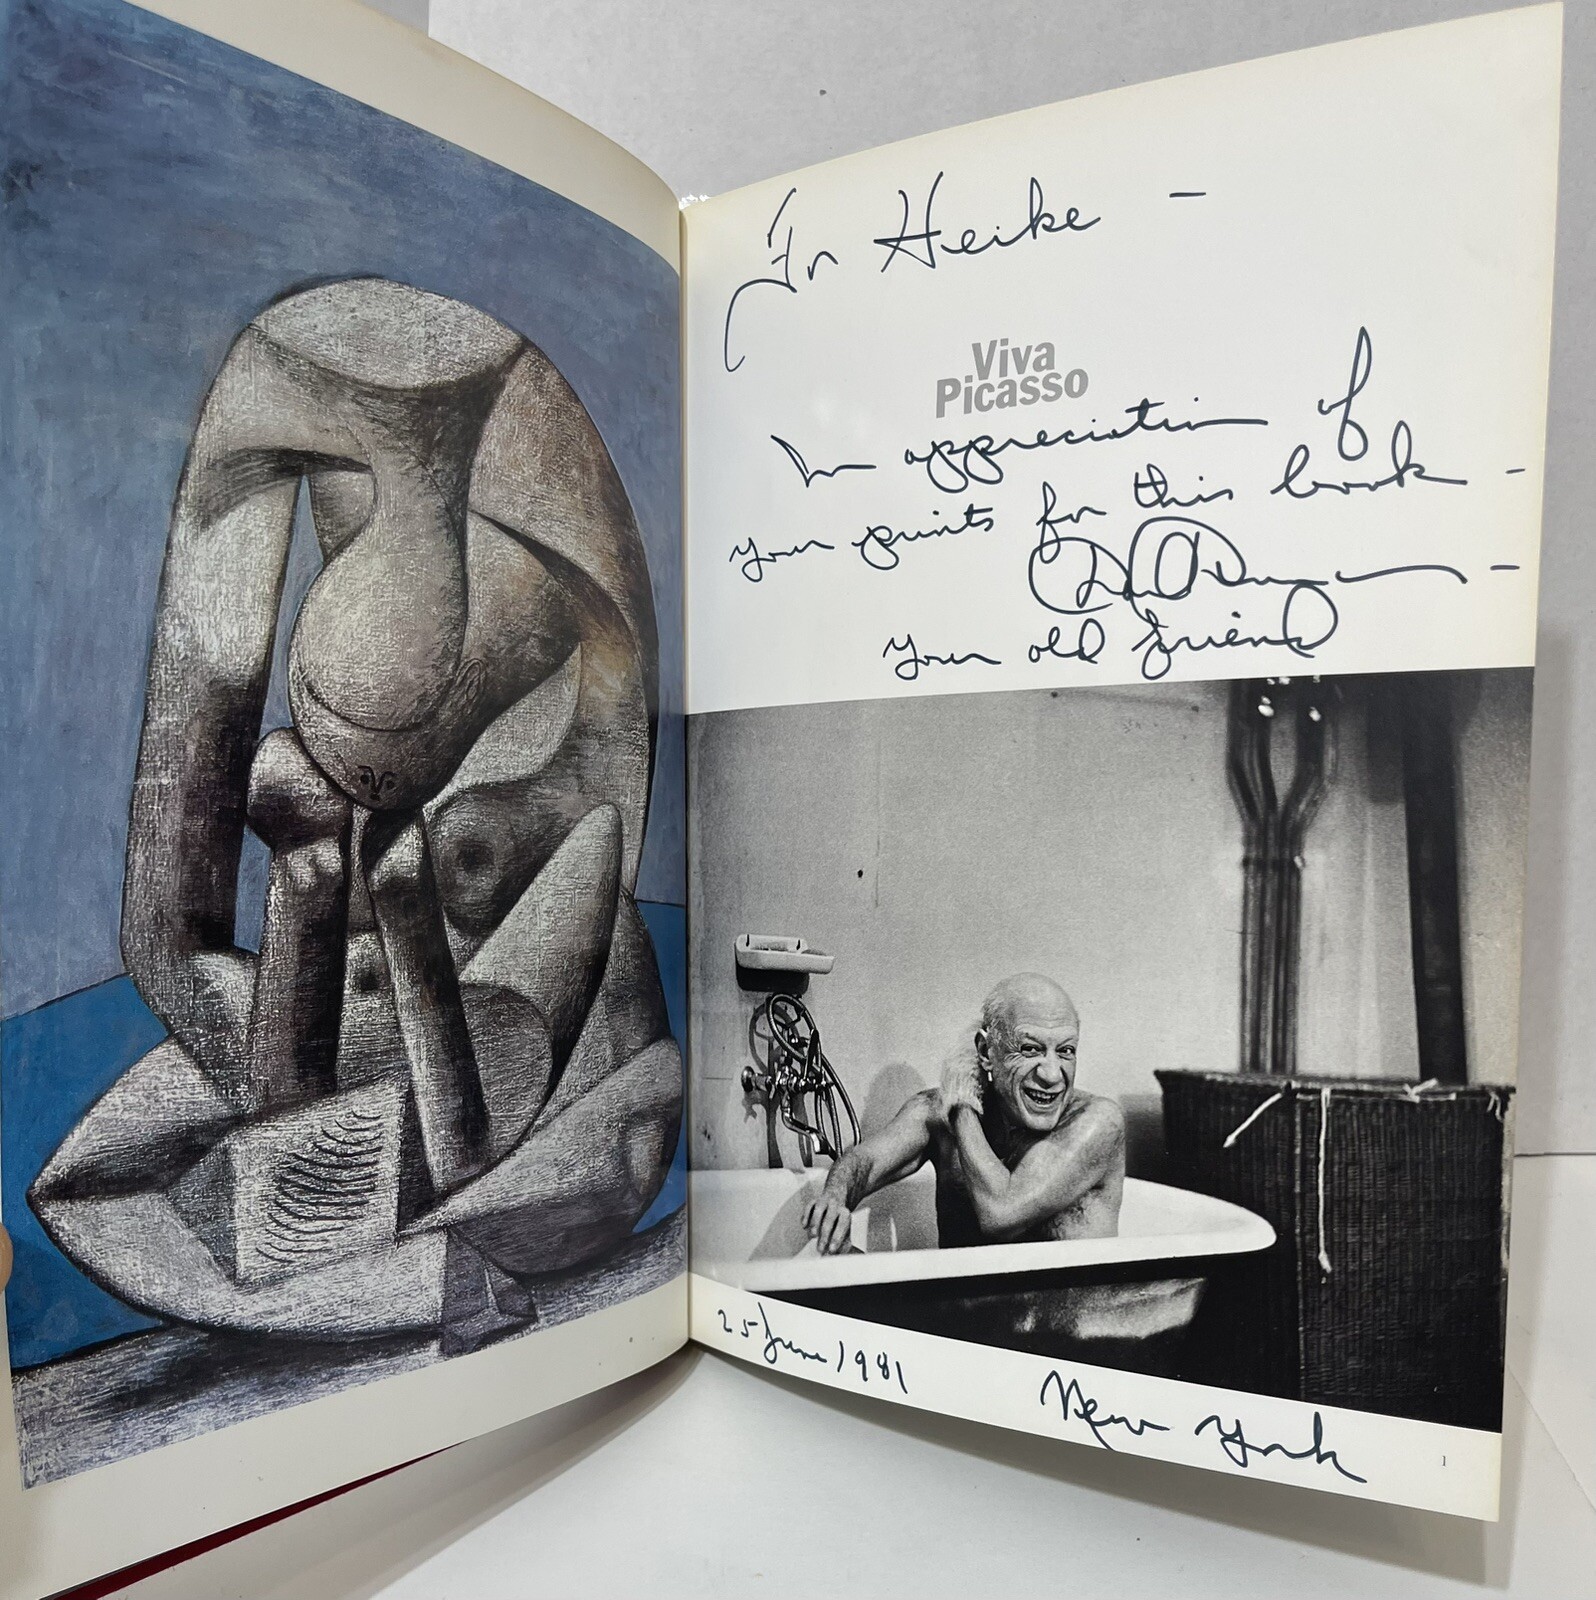 For Heike -
Viva
Picasso
In appreciation of
your prints for this book -
your old friend
25 June 1981
New York
1